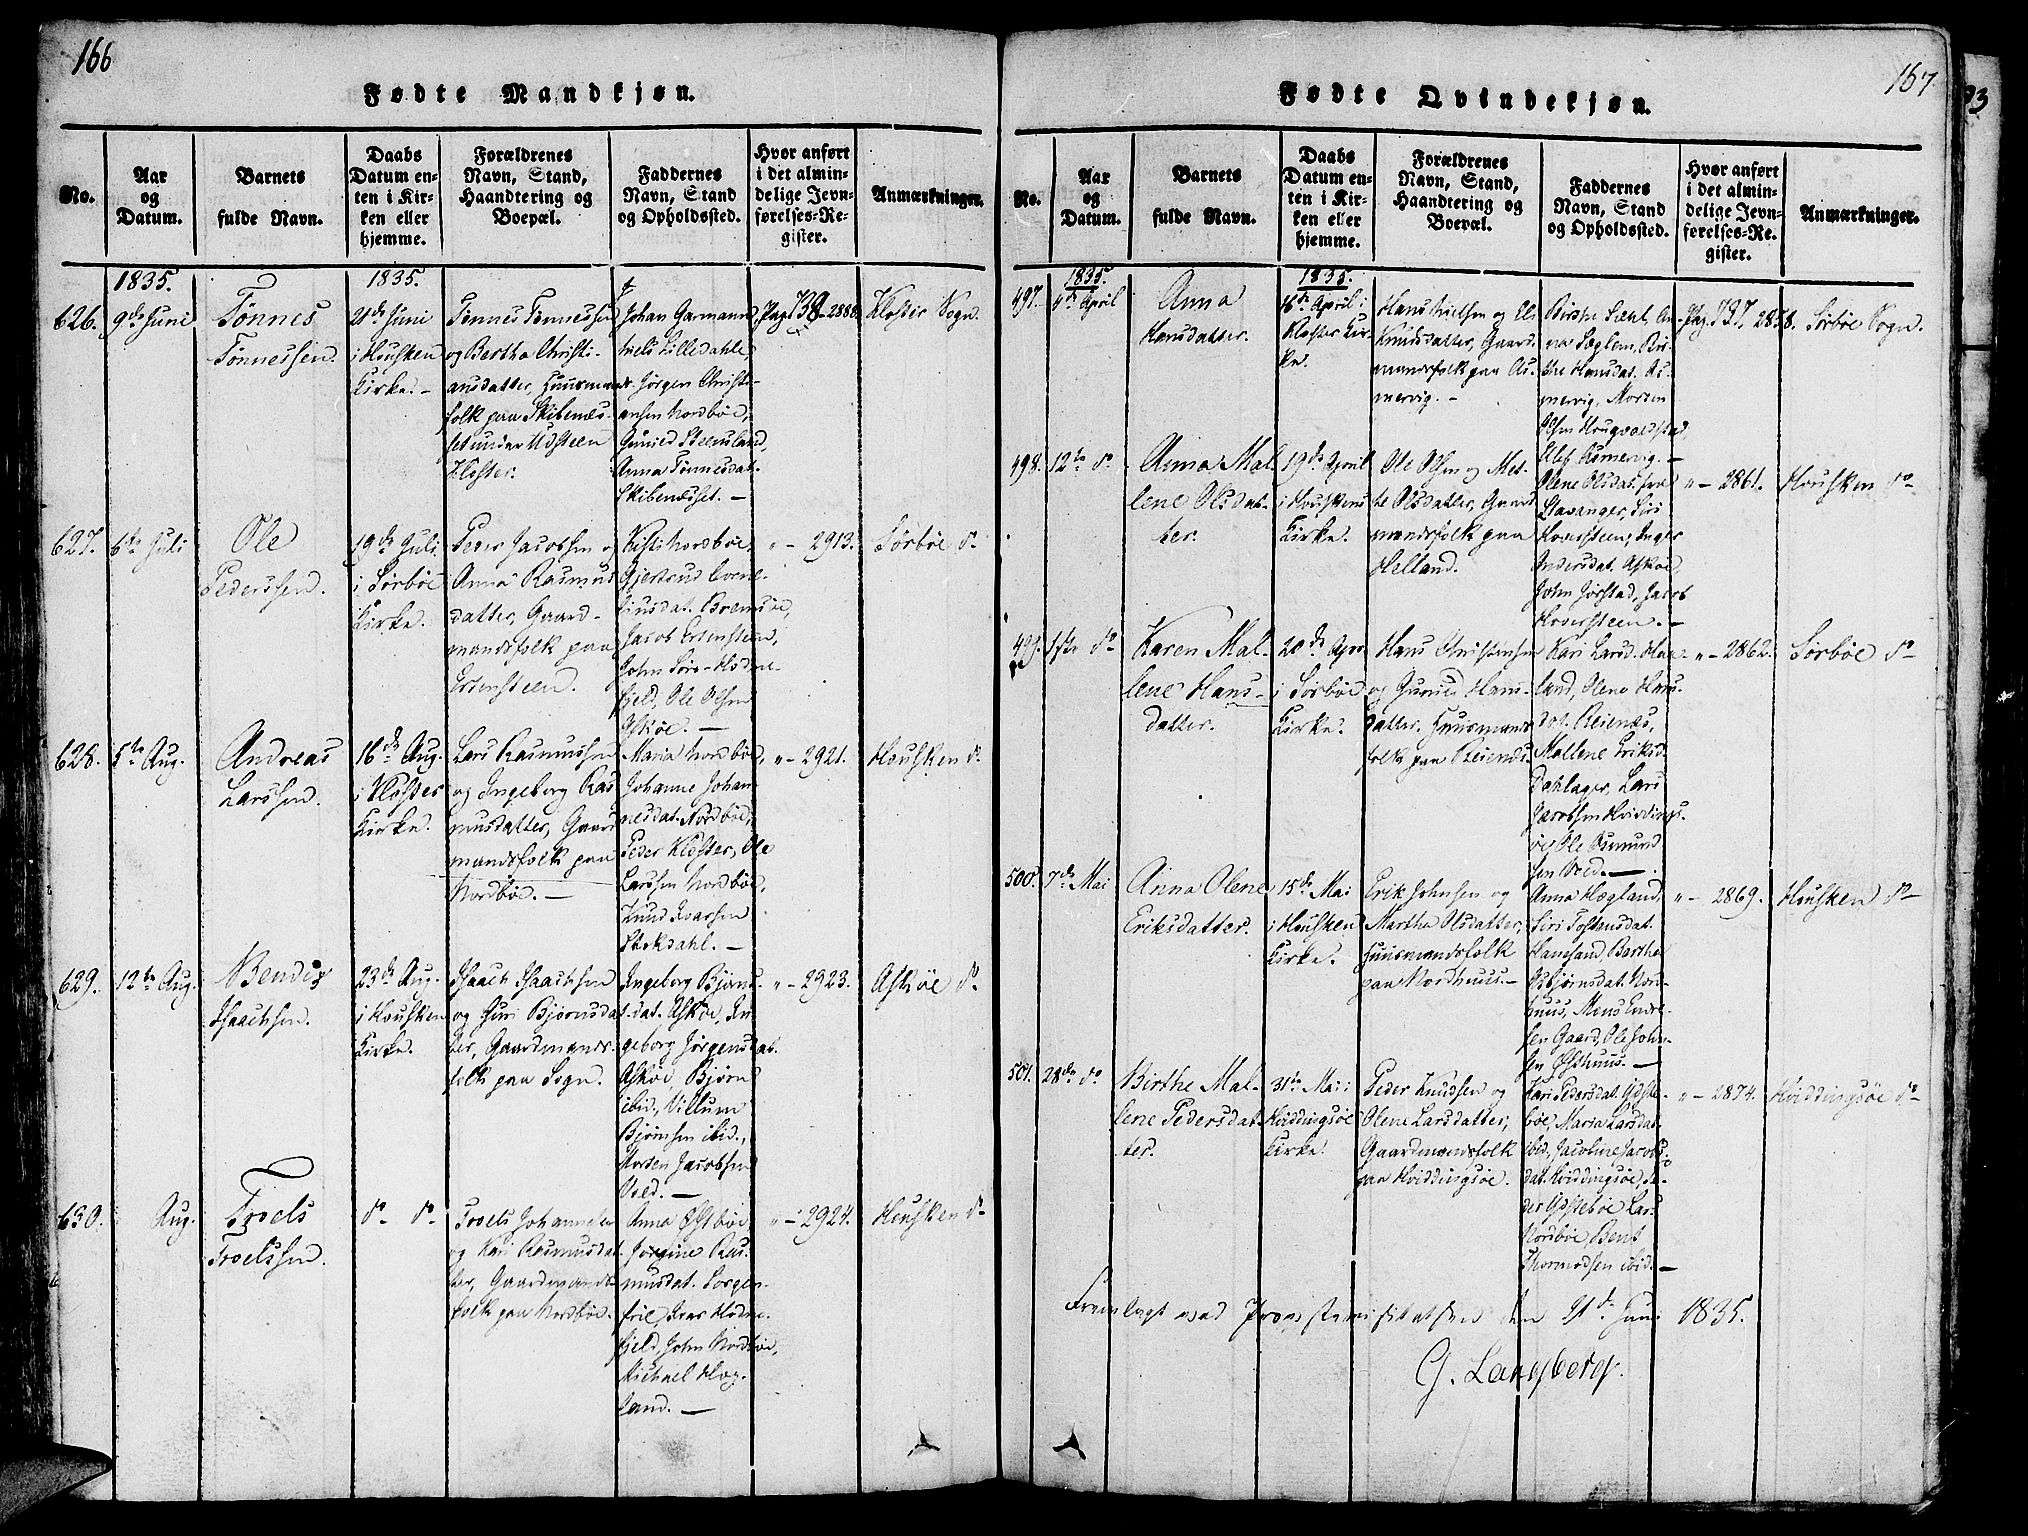 166
Fødte Mandkjøn.
No.
Aar
og
Datum.
Barnets
fulde Navn.
Daabs
Datum en-
ten i Kir-
ken eller
hjemme.
Forældrenes
Navn, Stand,
Haandtering og
Boepæl.
Faddernes
Navn, Stand
og Opholdssted.
Hvor anført
i det almin-
delige Jevn-
førelses-Re-
gister.
Anmærkninger.
1835.
626.
9de Juni
Tønnes
Tønnessen.
1835.
21de Juni
i Houskens
Kirke. -
Tønnes Tønnessen
og Bertha Christi-
ansdatter, Huusmands-
folk paa Skibenæs-
set under Udsteen
Kloster.
Johan Garmann,
Niels Lilledahle,
Jørgen Christi-
ansen Nordbøe,
Gunild Steensland,
Anna Tønnesdat.
Skibenæsset. -
Pag. 739-2888.
Kloster Sogn.
627.
6te Juli
Ole
Pederssen.
19de Juli
i Sørbøe
Kirke.
Peder Jacobsen og
Anna Rasmus
datter, Gaard-
mandsfolk paa
Ersensteen.
Kisti Nordbøe,
Gjertrud Corne-
liusdat. Bremsøe,
Jacob Ersensteen,
John Søre-Hodne-
fjeld, Ole Olsen
Askøe. -
" - 2913.
Sørbøe do
628.
5te Aug.
Andreas
Larssen.
16de Aug.
i Kloster
Kirke.
Lars Rasmussen
og Ingeborg Ras
musdatter, Gaard
mandsfolk paa
Nordbøe. -
Maria Nordbøe,
Johanne Johan-
nesdat. Nordbøe,
Peder Kloster, Ole
Larssen Nordbøe,
Knud Ivarssen
Stoksdahl. -
" - 2921.
Housken do
629.
12te Aug.
Bendix
Isaachsen.
23de Aug.
i Housken
Kirke.
Isaach Isaachsen
og Guri Bjørnsdat-
ter, Gaardmands-
folk paa Sogn.
Ingeborg Bjørns-
dat. Askøe, In-
geborg Jørgensdat.
Askøe, Bjørn
ibid., Villum
Bjørnsen ibid.,
Morten Jacobsen
Vold. -
" - 2923.
Askøe do
630.
Aug.
Troels
Troelssen.
do do
Troels Johannesen
og Kari Rasmusdat-
ter, Gaardmands-
folk paa Nordbøe.
Anna Østbøe
Jorgine Ras-
musdat. Sorgen-
frie, Ivar Hodne-
fjeld, John Nordbøe,
Michael Hog-
land. -
" - 2924.
Housken do
167
Fødte Qvindekjøn.
No.
Aar
og
Datum.
Barnets
fulde Navn.
Daabs
Datum en-
ten i Kir-
ken eller
hjemme.
Forældrenes
Navn, Stand,
Haandtering og
Boepæl.
Faddernes
Navn, Stand
og Opholdssted.
Hvor anført
i det almin-
delige Jevn-
førelses-Re-
gister.
Anmærkninger.
1835.
497.
4de April
Anna
Hansdatter.
1835.
16de April i
Kloster Kir-
ke.
Hans Nielsen og
Knudsdatter, Gaard-
mandsfolk paa As-
mervig. -
Birthe An-
na Sæglem, Bir-
the Hansdat. As-
mervig, Morten
Olsen Hougvaldstad,
Alef Asmervig. -
Pag. 737, 2858.
Sørbøe Sogn.
498.
12te do
Anna Mal-
lene Olsdat-
ter.
19de April
i Houskens
Kirke.
Ole Olsen og Met-
te Olsdatter, Gaard
mandsfolk paa
Helland.
Olene Olsdat. fra
Stavanger, Siri
Hoversteen, Inger
Andersdat. Askøe,
John Jørstad, Jacob
Hoversteen. -
" - 2861.
Housken do
499.
do
Karen Mal-
lene Hans-
datter.
20de Apr.
i Sørbøe
Kirke.
Hans Christensen
og Gunild Hans-
datter, Huusmands
folk paa Reienæs.
Kari Larsd. Haa-
land, Olene Hans-
dat. Reienæs,
Mallene Eriksd.
Dahlager, Lars
Jacobsen Hviddings-
øe Ole Asmund
sen Vold. -
" - 2862.
Sørbøe do
500.
7de Mai
Anna Olene
Eriksdatter.
15de Mai
i Housken
Kirke.
Erik Johnsen og
Martha Olsdatter,
Huusmandsfolk
paa Nordhuus. -
Anna Hægland,
Siri Tostensdat.
Hanasand, Berthe
Asbjørnsdat. Nor-
huus, Mons Endre-
sen Gaard, Ole John-
sen Østhuus. -
" - 2869.
Housken do
501.
28de do
Birthe Mal-
lene Pedersdat-
ter.
31te Mai i
Hviddingsøe
Kirke.
Peder Knudsen og
Olene Larsdatter,
Gaardmandsfolk
paa Hviddingsøe.
Kari Pedersdat. Ydste-
bøe, Maria Larsdat.
ibid, Jacobine Jacobs-
dat. Hviddingsøe, Pe-
der Ydstebøe Lars
Nordbøe, Bent
Thormodsen ibid. -
" - 2874.
Hviddingsøe do
Fremlagt ved Provstevisitatsen den 21de Juni 1835.
G. Langberg.